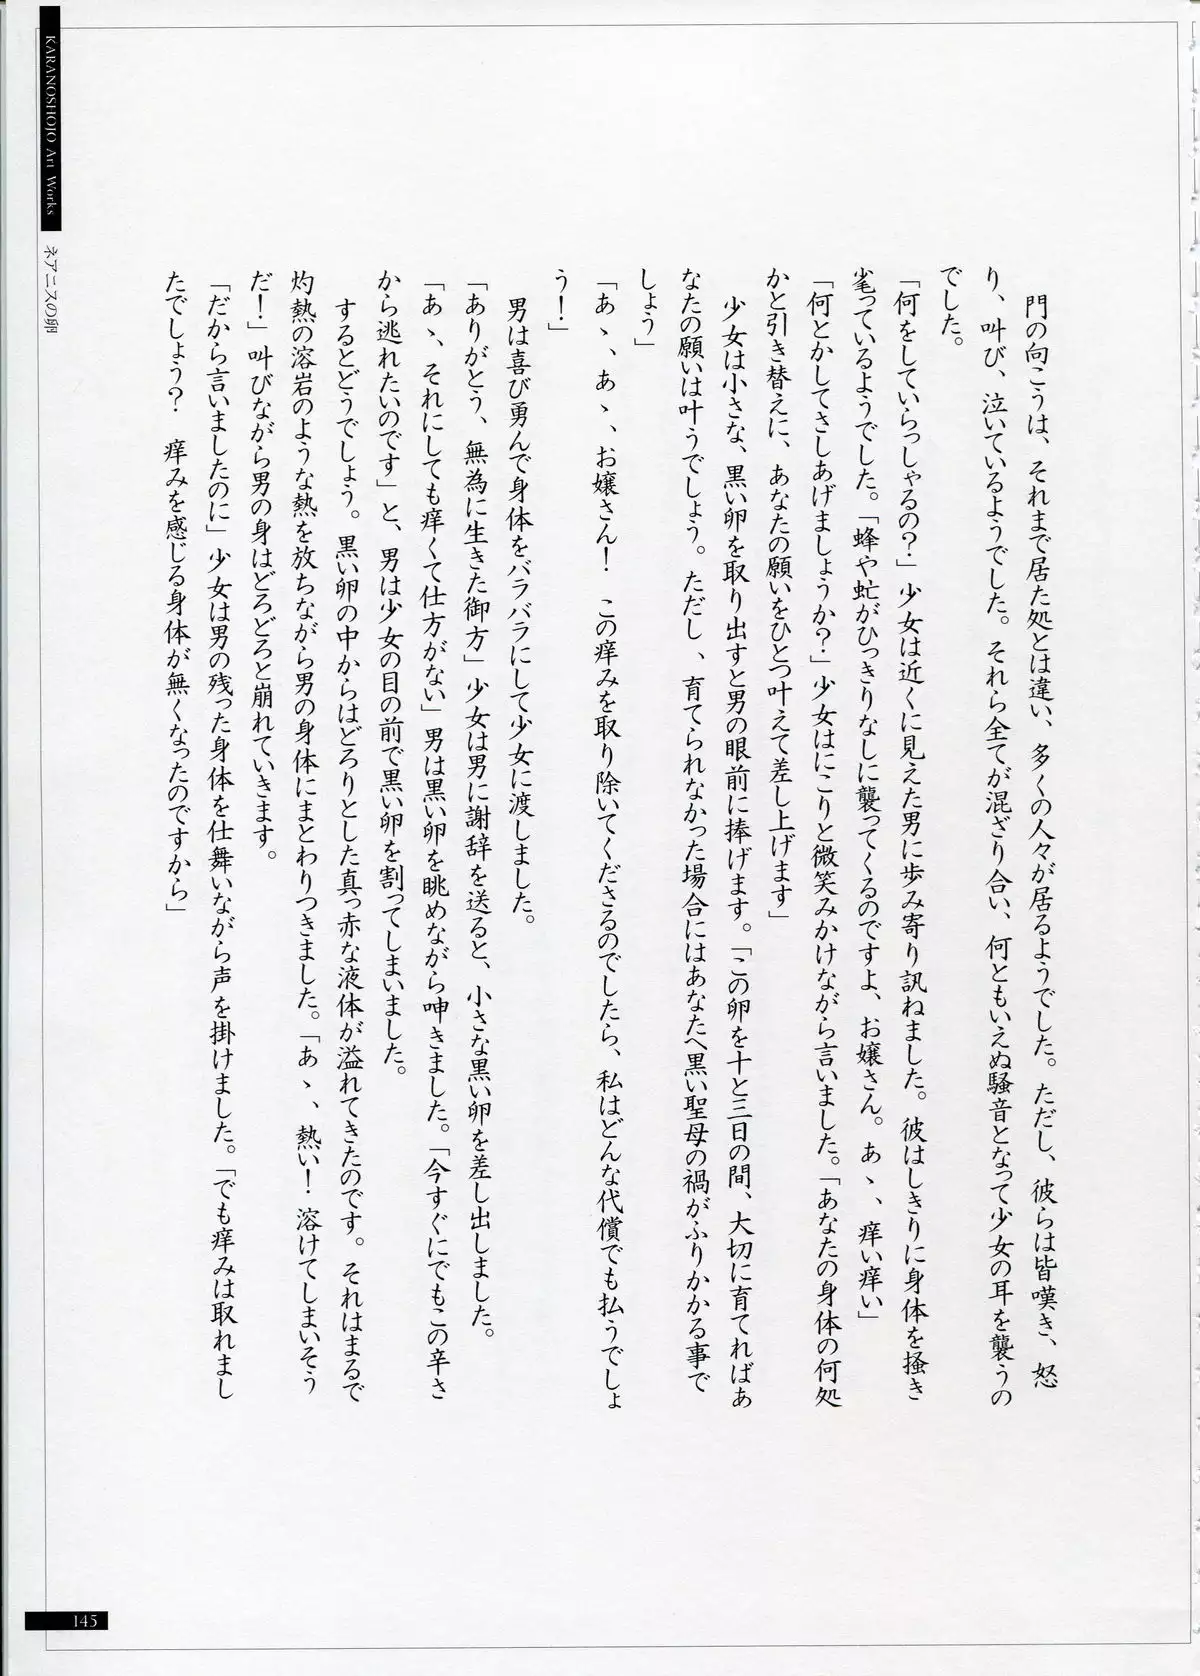 KARANOSHOJO Art Works
ネアニスの卵
門の向こうは、それまで居た処とは違い、多くの人々が居るようでした。ただし、彼らは皆嘆き、怒
り、叫び、泣いているようでした。それら全てが混ざり合い、何ともいえぬ騒音となって少女の耳を襲うの
でした。
「何をしていらっしゃるの？」少女は近くに見えた男に歩み寄り訊ねました。彼はしきりに身体を掻き
毟っているようでした。「蜂や虻がひっきりなしに襲ってくるのですよ、お嬢さん。あゝ、痒い痒い」
「何とかしてさしあげましょうか？」少女はにこりと微笑みかけながら言いました。「あなたの身体の何処
かと引き替えに、あなたの願いをひとつ叶えて差し上げます」
少女は小さな、黒い卵を取り出すと男の眼前に捧げます。「この卵を十と三日の間、大切に育てればあ
なたの願いは叶うでしょう。ただし、育てられなかった場合にはあなたへ黒い聖母の禍がふりかかる事で
しょう」
「あゝ、あゝ、お嬢さん！　この痒みを取り除いてくださるのでしたら、私はどんな代償でも払うでしょ
う！」
男は喜び勇んで身体をバラバラにして少女に渡しました。
「ありがとう、無為に生きた御方」少女は男に謝辞を送ると、小さな黒い卵を差し出しました。
「あゝ、それにしても痒くて仕方がない」男は黒い卵を眺めながら呻きました。「今すぐにでもこの辛さ
から逃れたいのです」と、男は少女の目の前で黒い卵を割ってしまいました。
するとどうでしょう。黒い卵の中からはどろりとした真っ赤な液体が溢れてきたのです。それはまるで
灼熱の溶岩のような熱を放ちながら男の身体にまとわりつきました。「あゝ、熱い！溶けてしまいそう
だ！」叫びながら男の身はどろどろと崩れていきます。
「だから言いましたのに」少女は男の残った身体を仕舞いながら声を掛けました。「でも痒みは取れまし
たでしょう？　痒みを感じる身体が無くなったのですから」
145